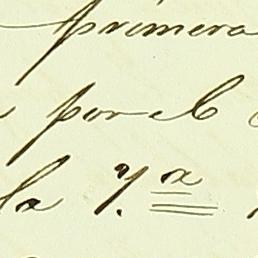 primera
por el
la 7.ª